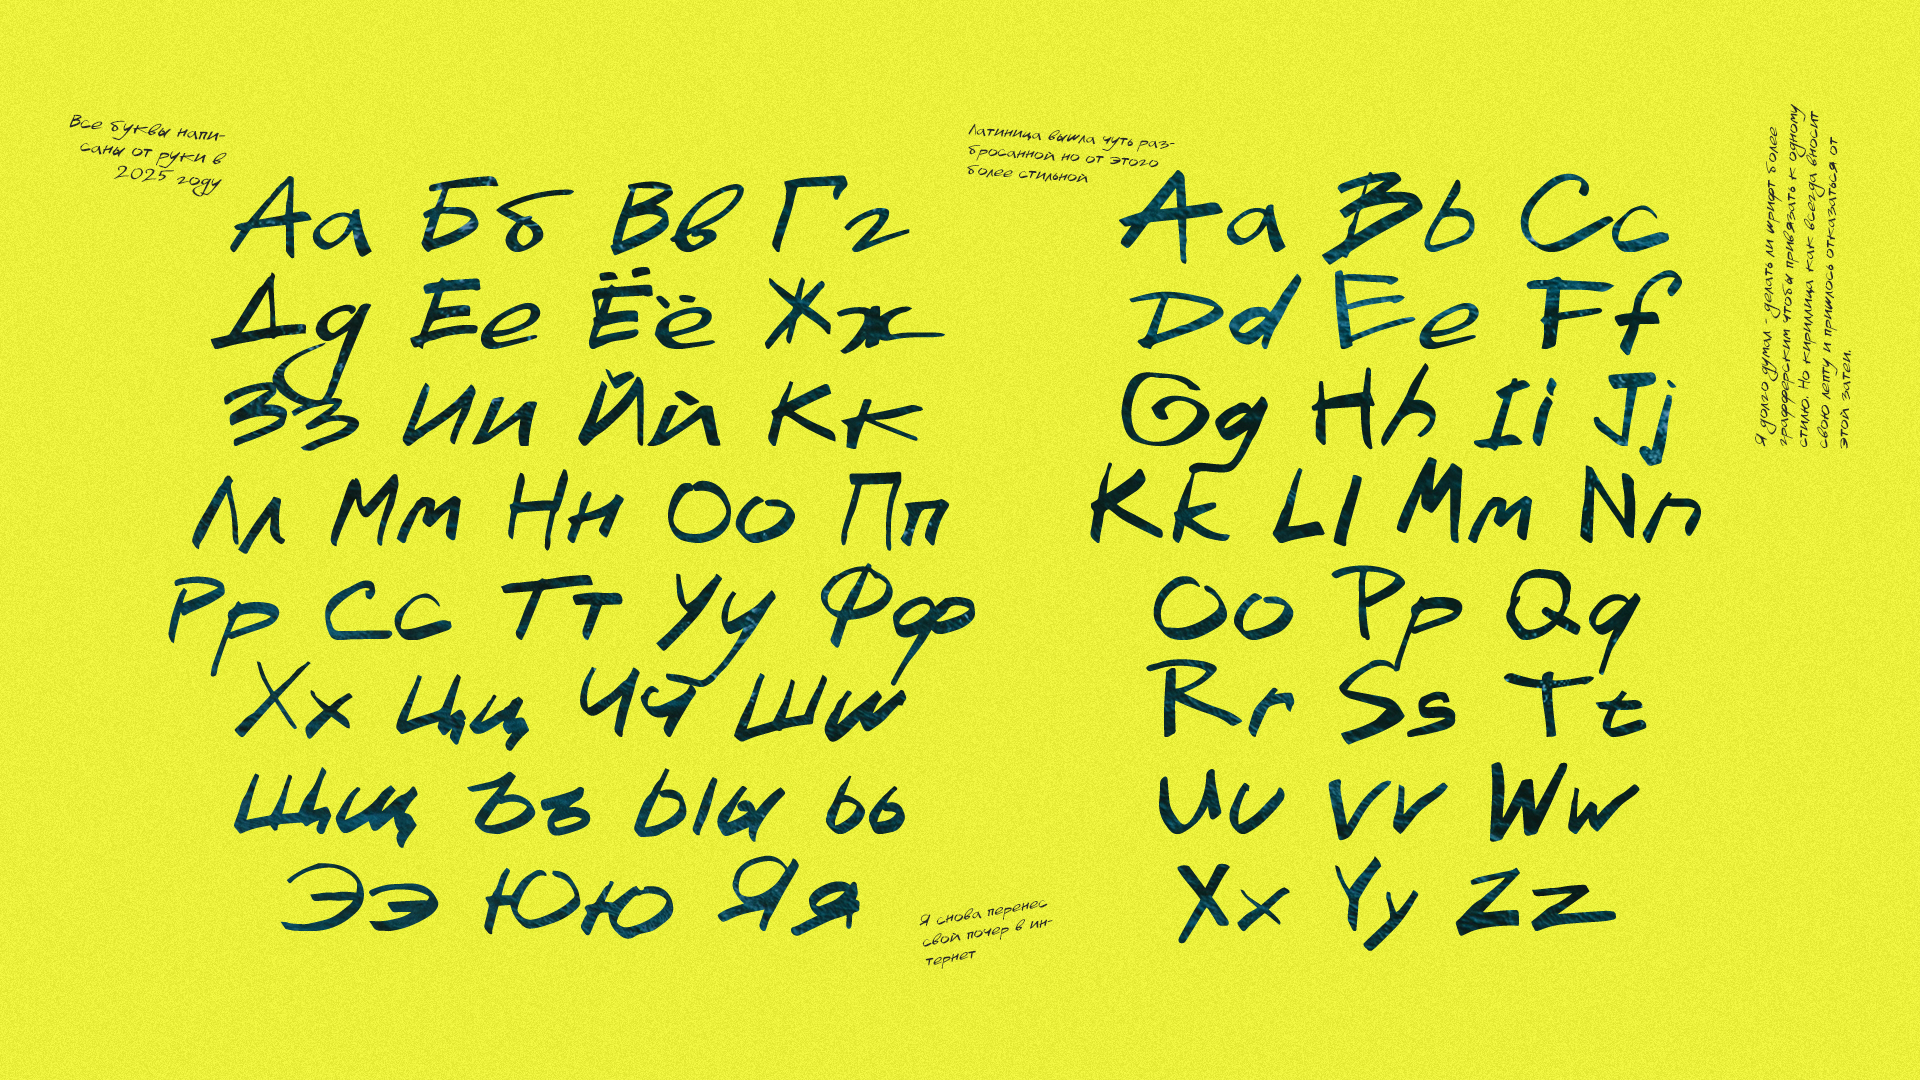 Все буквы напи-
саны от руки в
2025 году
Аа Бб Вв Гг
Дд Ее Ёё Жж
Зз Ии Йй Кк
Лл Мм Нн Оо Пп
Рр Сс Тт Уу Фф
Хх Цц Чч Шш
Щщ Ъъ Ыы Ьь
Ээ Юю Яя
Я снова перенес
свой почер в ин-
тернет
Латиница вышла чуть раз-
бросанной но от этого
более стильной
Aa Bb Cc
Dd Ee Ff
Gg Hh Ii Jj
Kk Ll Mm Nn
Oo Pp Qq
Rr Ss Tt
Uu Vv Ww
Xx Yy Zz
Я долго думал - делать ли шрифт более
графферским чтобы привязать к одному
стилю. Но кириллица как всегда вносит
свою лепту и пришлось отказаться от
этой затеи.